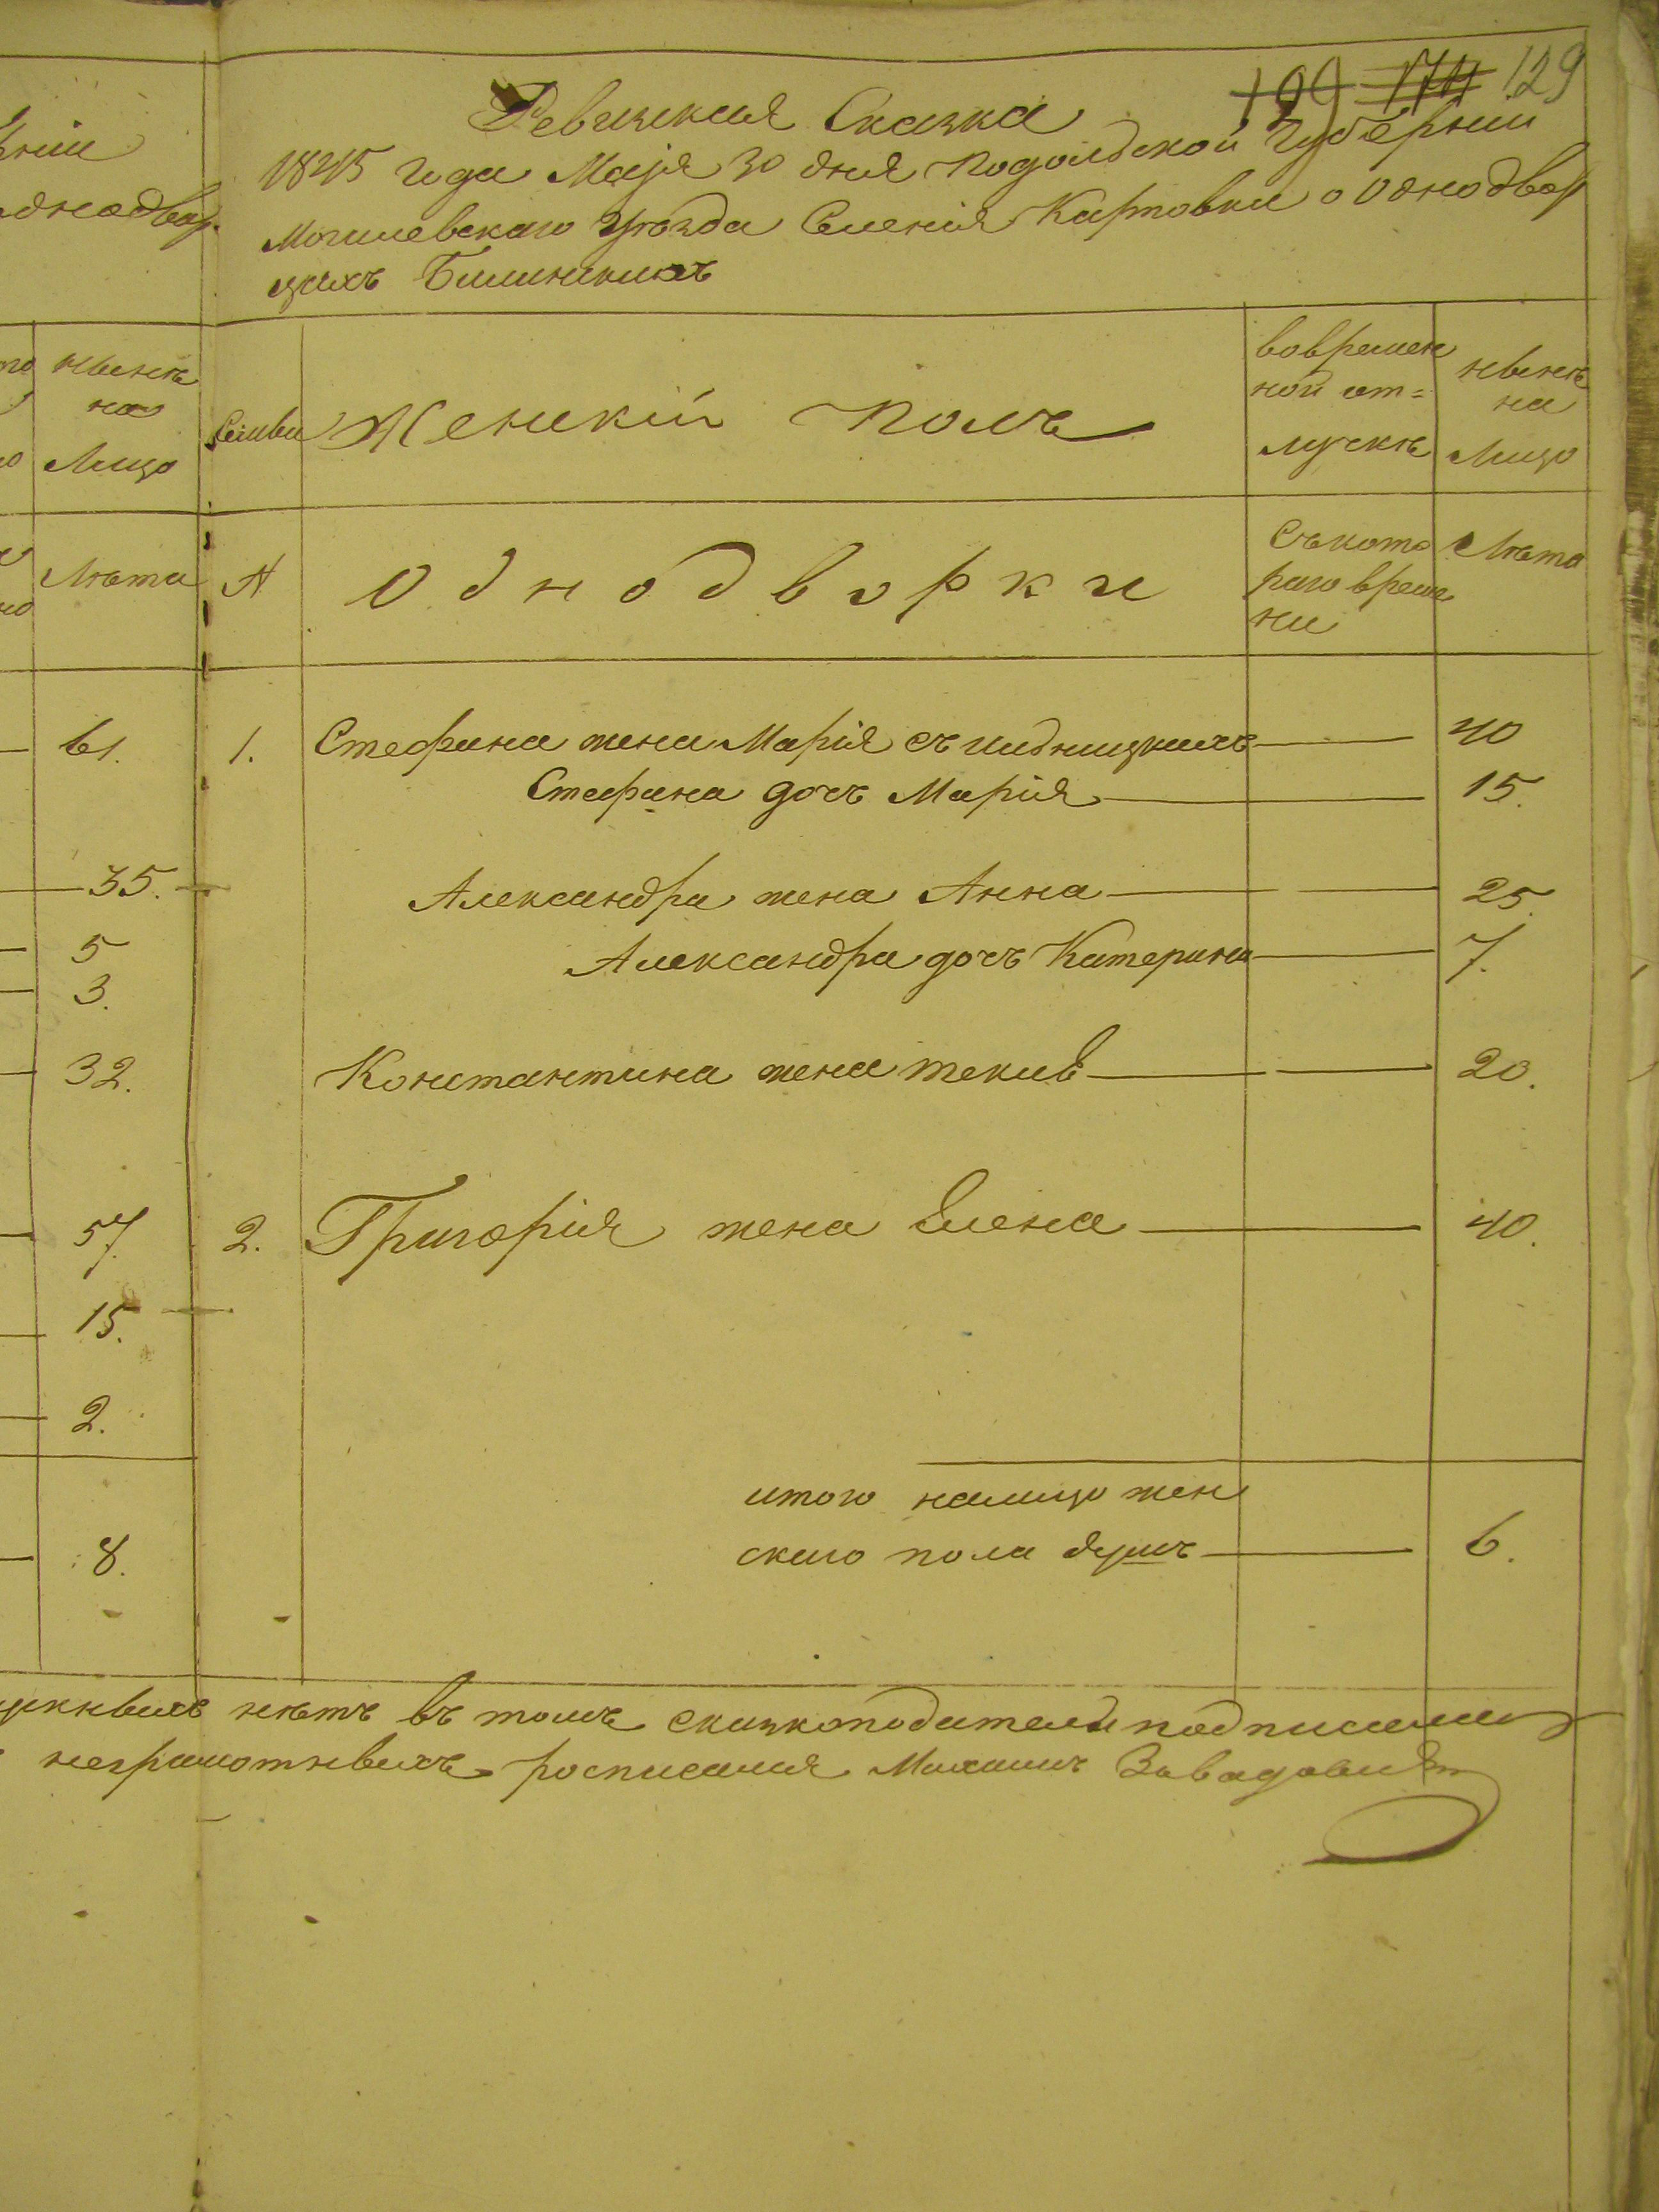 199 174 129
Ревизская Сказка
1845 года Маія 30 дня Подольской Губернии
Могилевскаго Уѣзда Селенія Карповки о Однодвор
цахъ Билинскихъ
рніи
однодвор.
нынѣ
на
Лицо
Лѣта
Семьи
Женскій полъ
вовремен
ной от=
лучкѣ
нынѣ
на
Лицо
№
Однодворки
Съ кото
раго време
ни
Лѣта
61.
1. Стефана жена Марія съ 40
Стефана дочъ Марія 15.
35.
Александра жена Анна 25.
5
Александра дочъ Катерина 7.
3.
32.
Константина жена 20.
57.
2. Григорія жена Елена 40.
15.
2.
итого налицо жен
скаго пола душъ 6.
8.
нѣтъ въ томъ сказкоподатели подписались
неграмотныхъ росписался Михаилъ